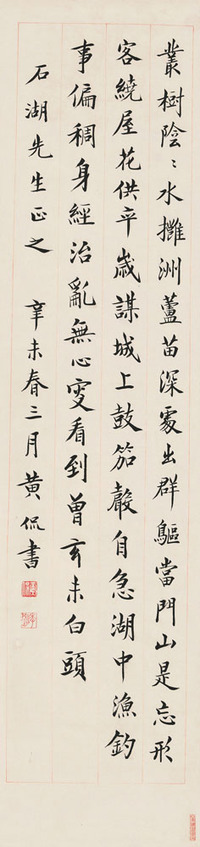 叢樹陰〻水攤洲蘆苗深處出群鷗當門山是忘形
客繞屋花供卒歲謀城上鼓笳聲自急湖中漁釣
事偏稠身經治亂無心變看到曾玄未白頭
石湖先生正之 辛未春三月黃侃書